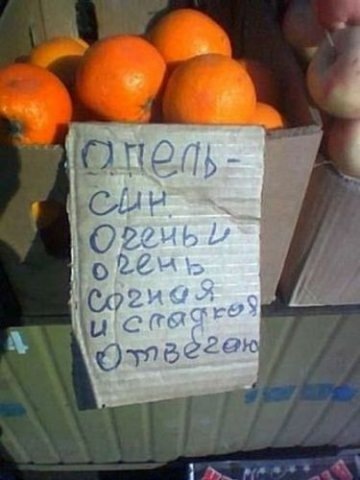 опель-
син
Очень и
очень
сочная
и сладкая
Отвечаю